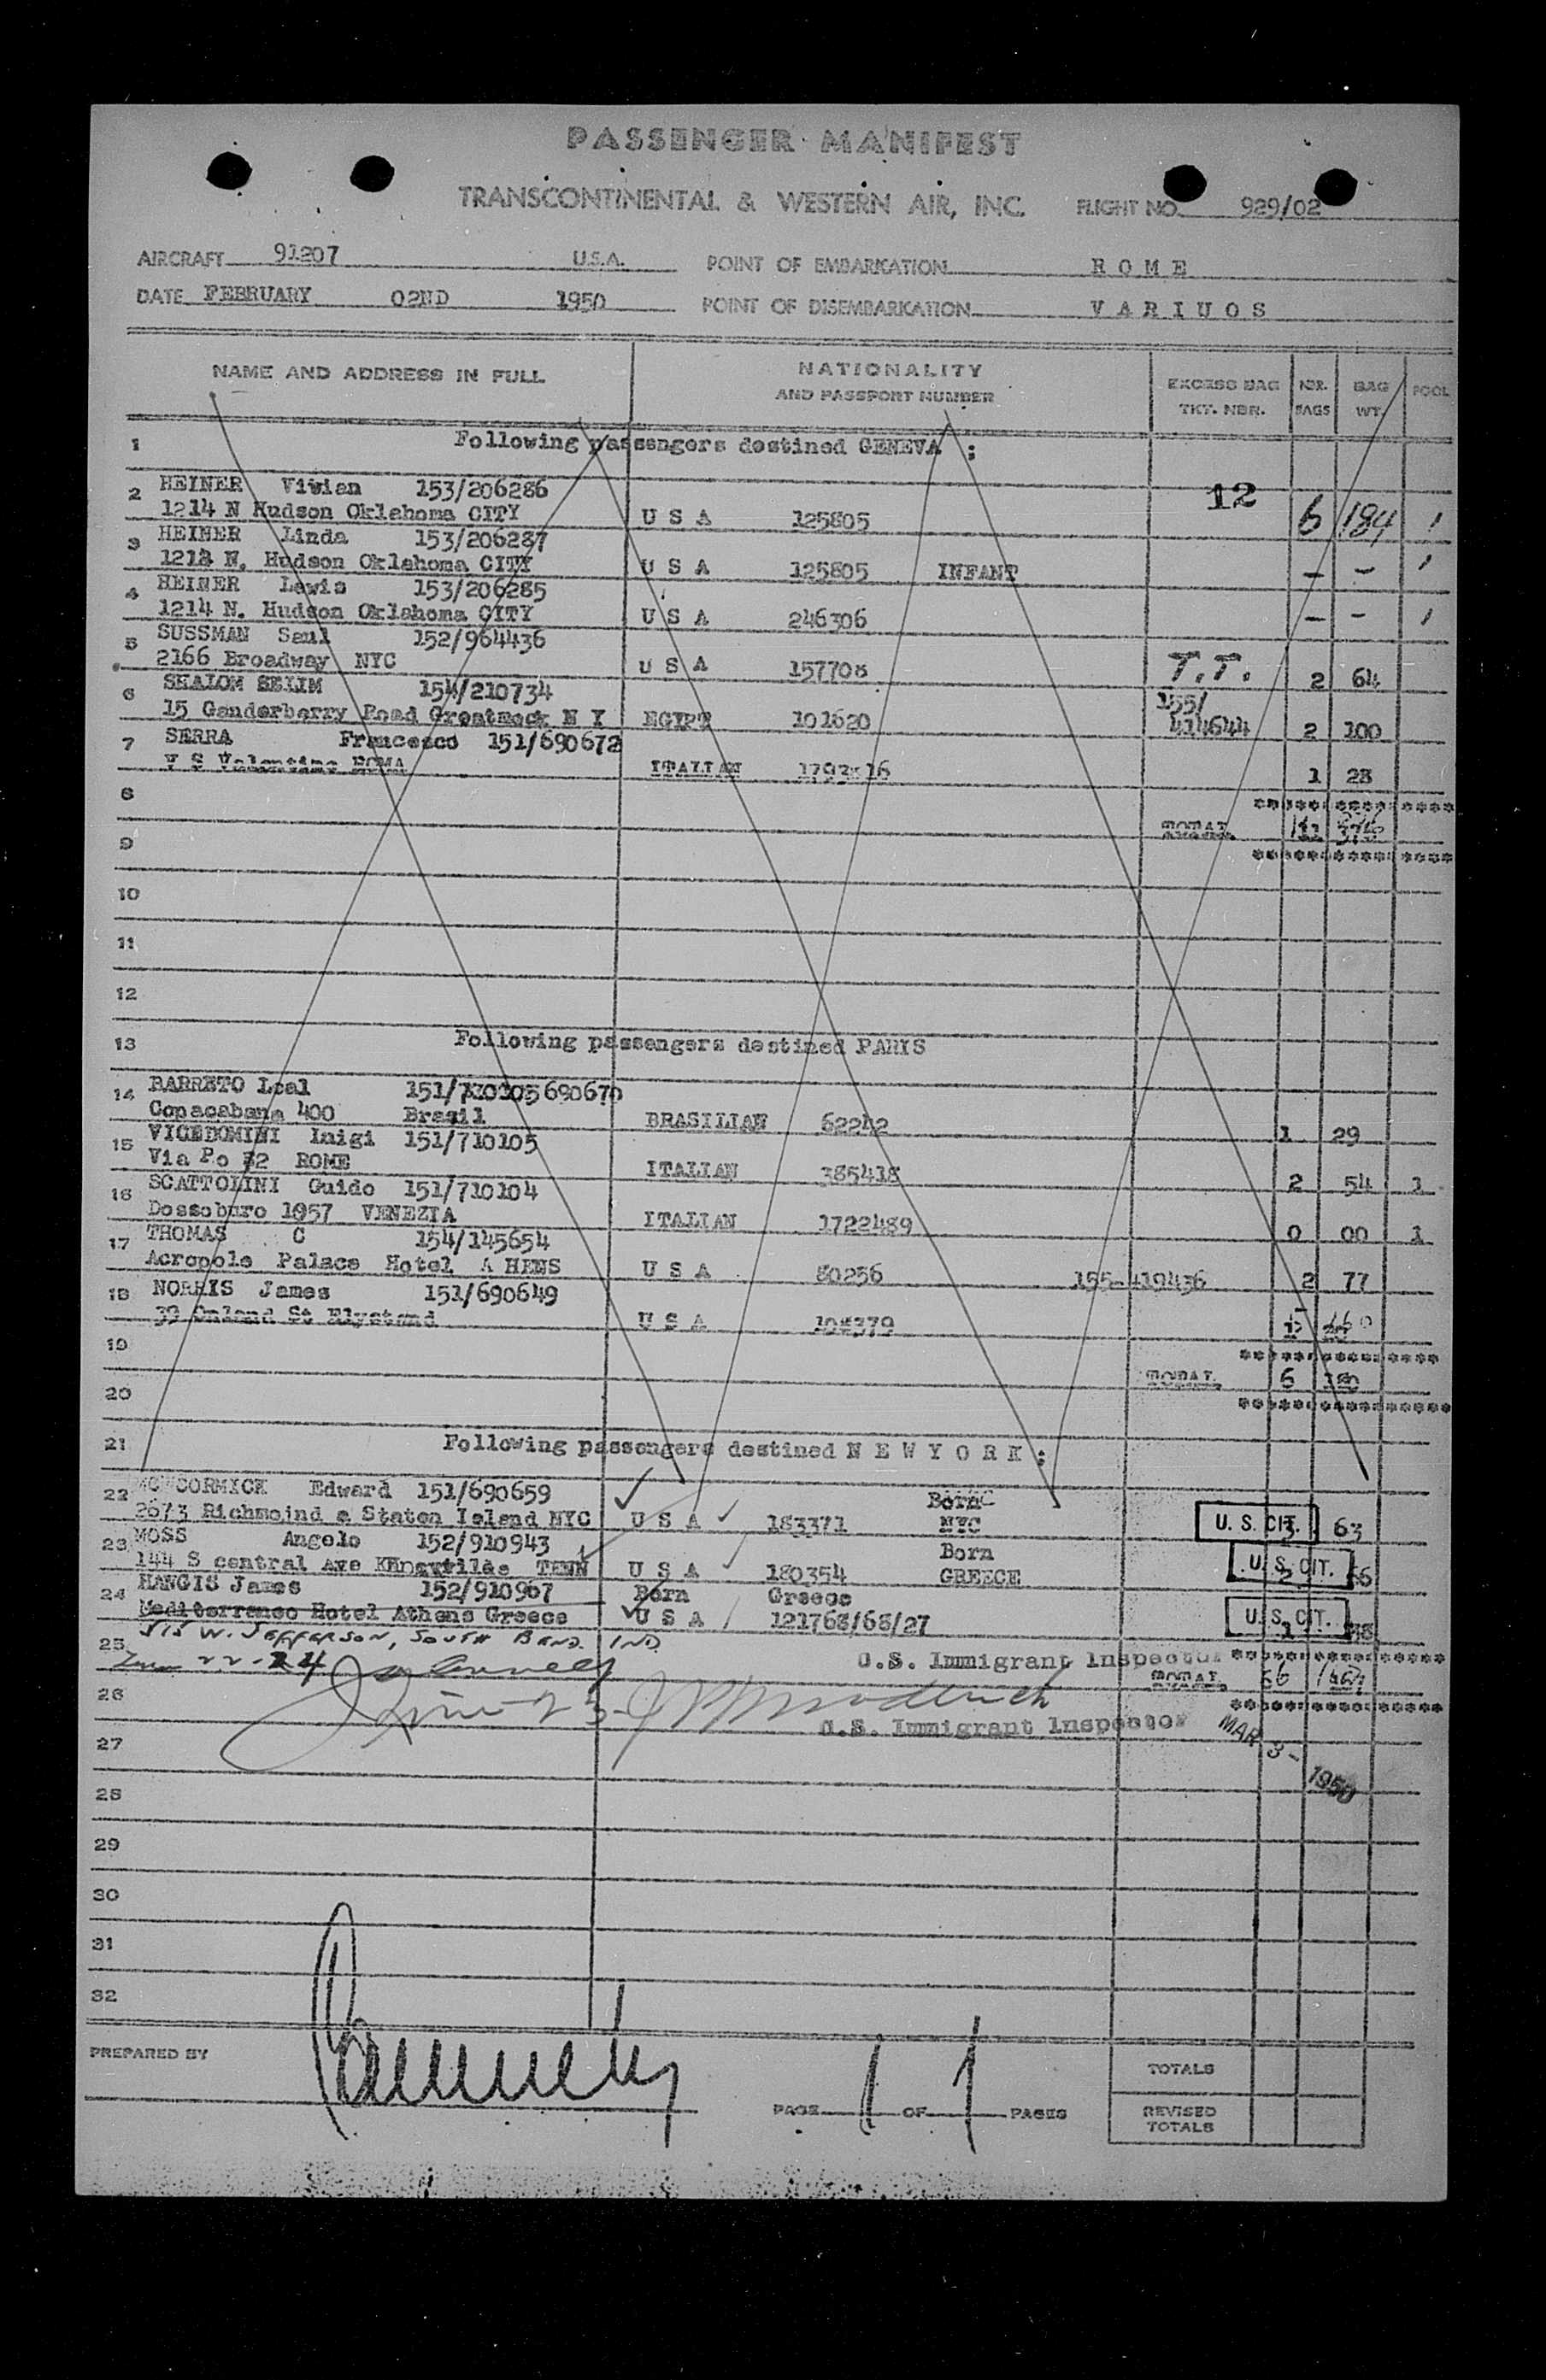 PASSENGER MANIFEST
TRANSCONTINENTAL & WESTERN AIR, INC. FLIGHT NO. 929/02
AIRCRAFT 91207 U.S.A. POINT OF EMBARKATION R O M E
DATE FEBRUARY 02ND 1950 POINT OF DISEMBARKATION V A R I U O S
NAME AND ADDRESS IN FULL NATIONALITY AND PASSPORT NUMBER EXCESS BAG TKT. NBR. NBR. BAGS BAG WT. POOL
1 Following passengers destined GENEVA ;
2 HEINER Vivian 153/206286
1214 N Hudson Oklahoma CITY U S A 125805 12 6 184 1
3 HEINER Linda 153/206287
1214 N. Hudson Oklahoma CITY U S A 125805 INFANT - - 1
4 HEINER Lewis 153/206285
1214 N. Hudson Oklahoma CITY U S A 246306 - - 1
5 SUSSMAN Saul 152/964436
2166 Broadway NYC U S A 157708 T.T. 2 64
6 SHALOM SELIM 154/210734
15 Ganderberry Road Greatneck N Y EGIPT 101620 155/ 414644 2 100
7 SERRA Francesco 151/690672
V S Valentino ROMA ITALIAN 1 28
8
TOTAL 11 376
9
10
11
12
13 Following passengers destined PARIS
14 BARRETO Leal 690670
Copacabana 400 Brasil BRASILIAN 62242 1 29
15 VICEDOMINI Luigi 151/710105
Via Po 72 ROME ITALIAN 385418 2 54 1
16 SCATTOLINI Guido 151/710104
Dossoburo 1057 VENEZIA ITALIAN 1722489 0 00 1
17 THOMAS C 154/145654
Acropole Palace Hotel A HENS U S A 80256 155-419436 2 77
18 NORRIS James 151/690649
39 St Elystend U S A
19
TOTAL 6
20
21 Following passengers destined N E W Y O R K ;
22 MC CORMICK Edward 151/690659 Born
2673 Richmoind a Staton Island NYC U S A 183371 NYC U. S. CIT. 63
23 MOSS Angelo 152/910943 Born
144 S central Ave TENN U S A 180354 GREECE U. S. CIT.
24 HANGIS James 152/910967 Born Greece
Mediterraneo Hotel Athens Greece U S A 121768/68/27 U. S. CIT.
25 515 W. JEFFERSON, SOUTH BEND. IND
U.S. Immigrant Inspector
TOTAL
26
U.S. Immigrant Inspector
MAR 3 - 1950
27
28
29
30
31
32
PREPARED BY
PAGE 1 OF 1 PAGES
TOTALS
REVISED TOTALS